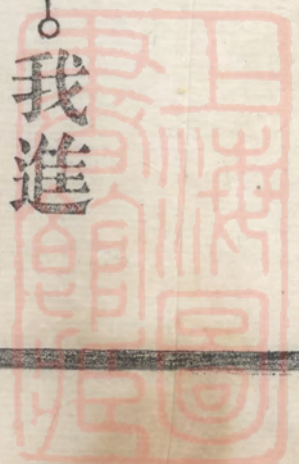 我進
上海圖
書館藏